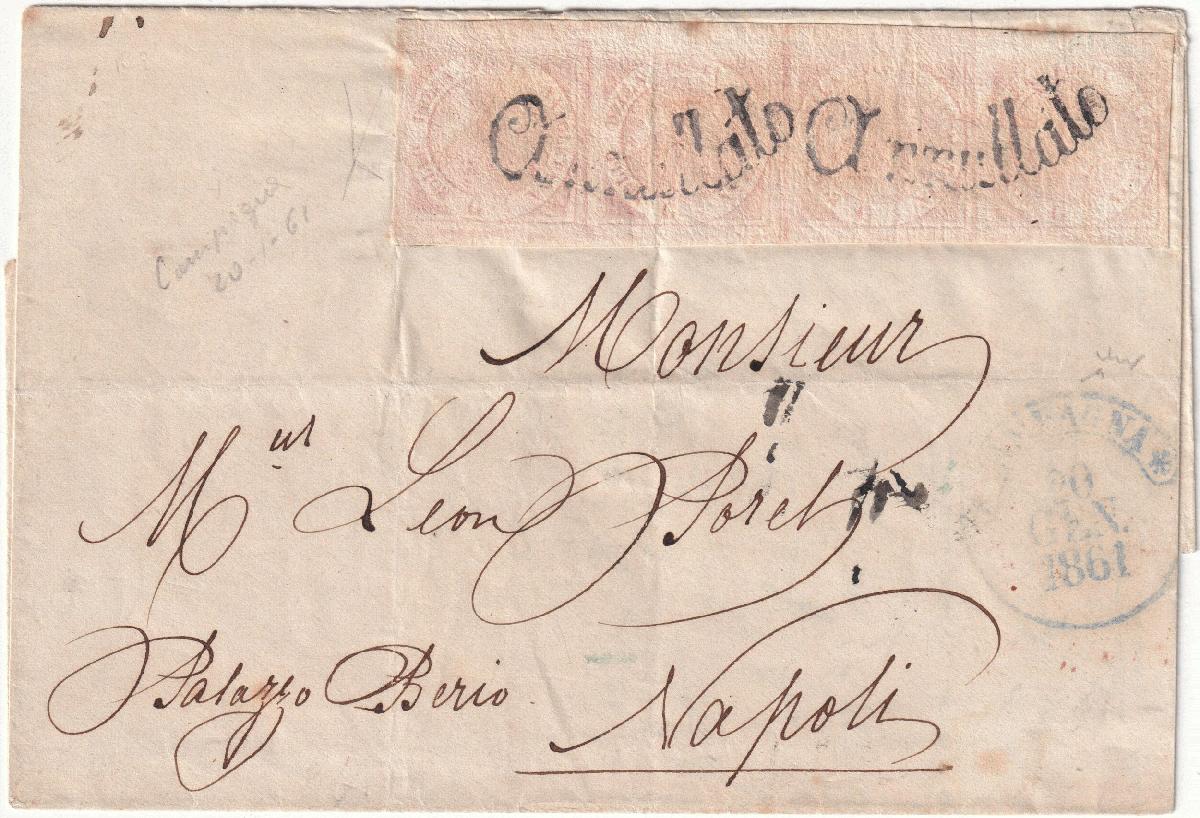 Annullato Annullato
20-1-61
Monsieur
Mur Leon Poret
Palazzo Berio
Napoli
20
GEN.
1861